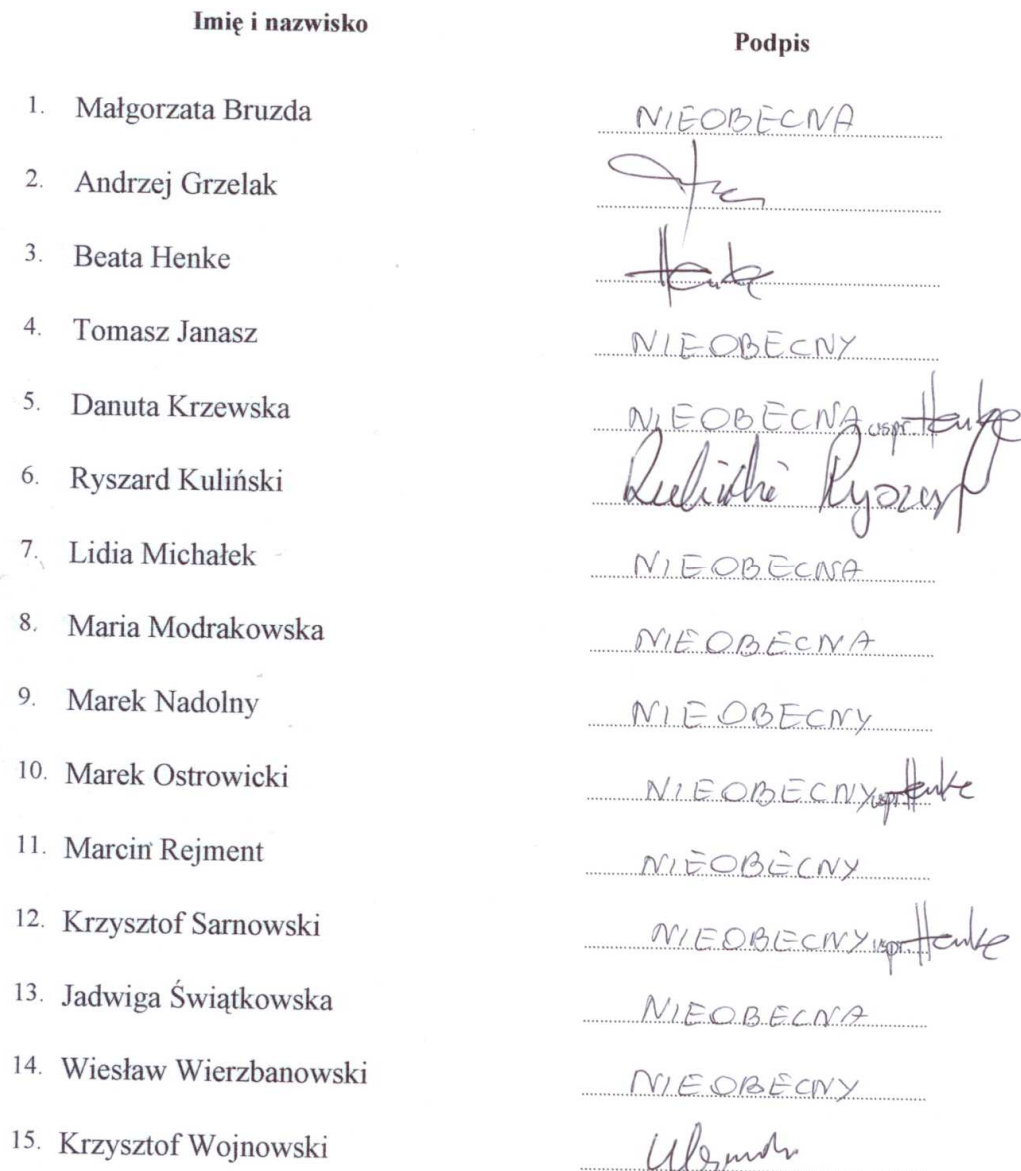 Imię i nazwisko Podpis
1. Małgorzata Bruzda NIEOBECNA
2. Andrzej Grzelak
3. Beata Henke Henke
4. Tomasz Janasz NIEOBECNY
5. Danuta Krzewska NIEOBECNA uspr. Henke
6. Ryszard Kuliński Kuliński Ryszard
7. Lidia Michałek NIEOBECNA
8. Maria Modrakowska NIEOBECNA
9. Marek Nadolny NIEOBECNY
10. Marek Ostrowicki NIEOBECNY uspr. Henke
11. Marcin Rejment NIEOBECNY
12. Krzysztof Sarnowski NIEOBECNY uspr. Henke
13. Jadwiga Świątkowska NIEOBECNA
14. Wiesław Wierzbanowski NIEOBECNY
15. Krzysztof Wojnowski